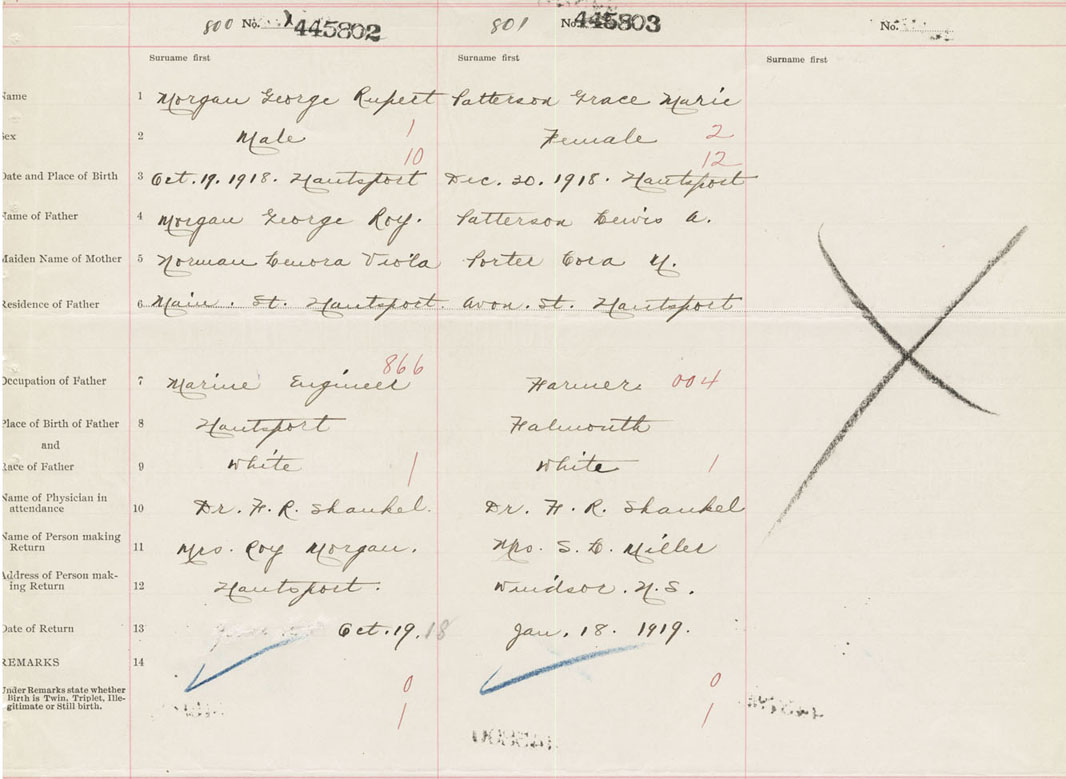 800 No. 445802 801 No. 445803 No.
Surname first Surname first Surname first
Name 1 Morgan George Rupert Patterson Grace Marie
Sex 2 Male 1 Female 2
10 12
Date and Place of Birth 3 Oct. 19. 1918. Hantsport Dec. 30. 1918. Hantsport
Name of Father 4 Morgan George Roy. Patterson Lewis A.
Maiden Name of Mother 5 Norman Lenora Viola Porter Cora M.
Residence of Father 6 Main. St. Hantsport. Avon. St. Hantsport
866
Occupation of Father 7 Marine Engineer Farmer. 004
Place of Birth of Father 8 Hantsport Falmouth
and
Race of Father 9 White 1 White 1
Name of Physician in
attendance 10 Dr. F. R. Shankel. Dr. F. R. Shankel
Name of Person making
Return 11 Mrs. Roy Morgan. Mrs. S. L. Miller
Address of Person mak-
ing Return 12 Hantsport. Windsor. N.S.
Date of Return 13 Oct. 19. 18 Jan. 18. 1919.
REMARKS 14
Under Remarks state whether 0 0
Birth is Twin, Triplet, Ille-
gitimate or Still birth. 1 1